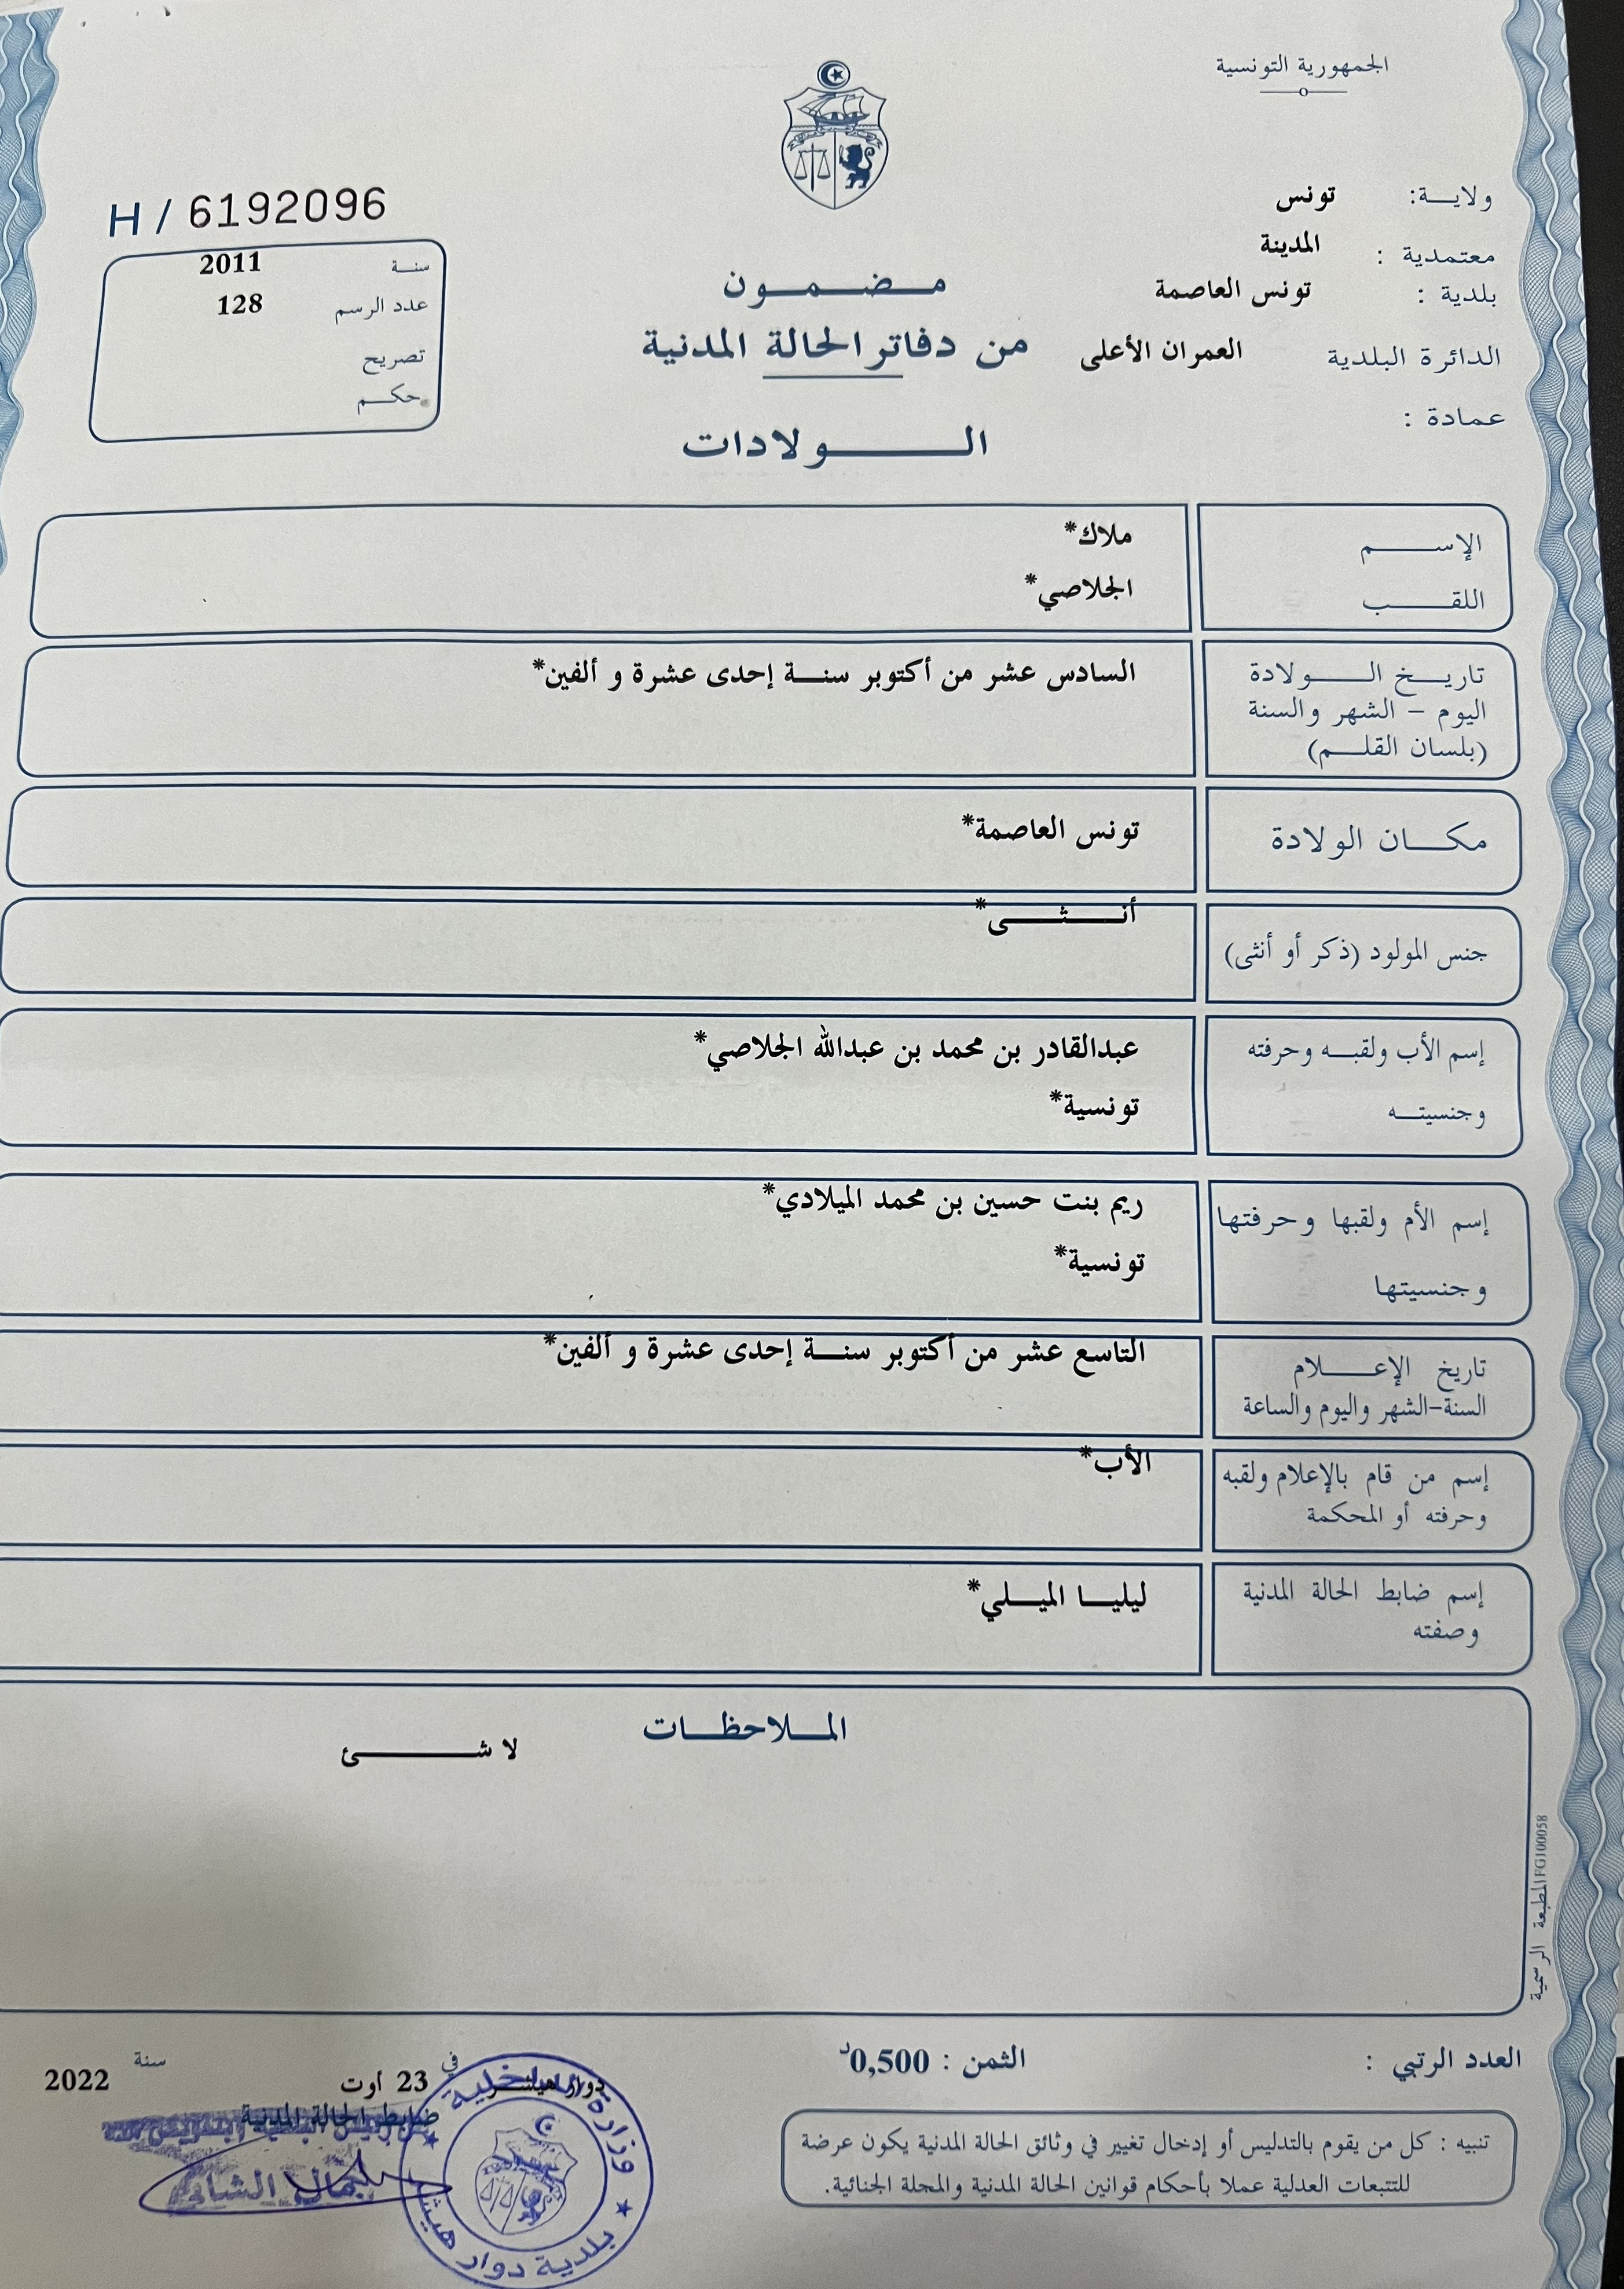 الجمهورية التونسية
ولاية: تونس
معتمدية : المدينة
بلدية : تونس العاصمة
الدائرة البلدية العمران الأعلى
عمادة :
H / 6192096
سنة 2011
عدد الرسم 128
تصريح
حكم
مضمون
من دفاتر الحالة المدنية
الولادات
الإسم ملاك*
اللقب الجلاصي*
تاريخ الولادة السادس عشر من أكتوبر سنة إحدى عشرة و ألفين*
اليوم - الشهر والسنة
(بلسان القلم)
مكان الولادة تونس العاصمة*
جنس المولود (ذكر أو أنثى) أنثى*
إسم الأب ولقبه وحرفته عبدالقادر بن محمد بن عبدالله الجلاصي*
وجنسيته تونسية*
إسم الأم ولقبها وحرفتها ريم بنت حسين بن محمد الميلادي*
وجنسيتها تونسية*
تاريخ الإعلام التاسع عشر من أكتوبر سنة إحدى عشرة و ألفين*
السنة-الشهر واليوم والساعة
إسم من قام بالإعلام ولقبه الأب*
وحرفته أو المحكمة
إسم ضابط الحالة المدنية ليليا الميلي*
وصفته
الملاحظات
لا شئ
المطبعة الرسمية FG100058
العدد الرتبي :
الثمن : 0,500د
دوار هيشر في 23 أوت سنة 2022
ضابط الحالة المدنية
وزارة الداخلية
بلدية دوار هيشر
تنبيه : كل من يقوم بالتدليس أو إدخال تغيير في وثائق الحالة المدنية يكون عرضة
للتتبعات العدلية عملا بأحكام قوانين الحالة المدنية والمجلة الجنائية.